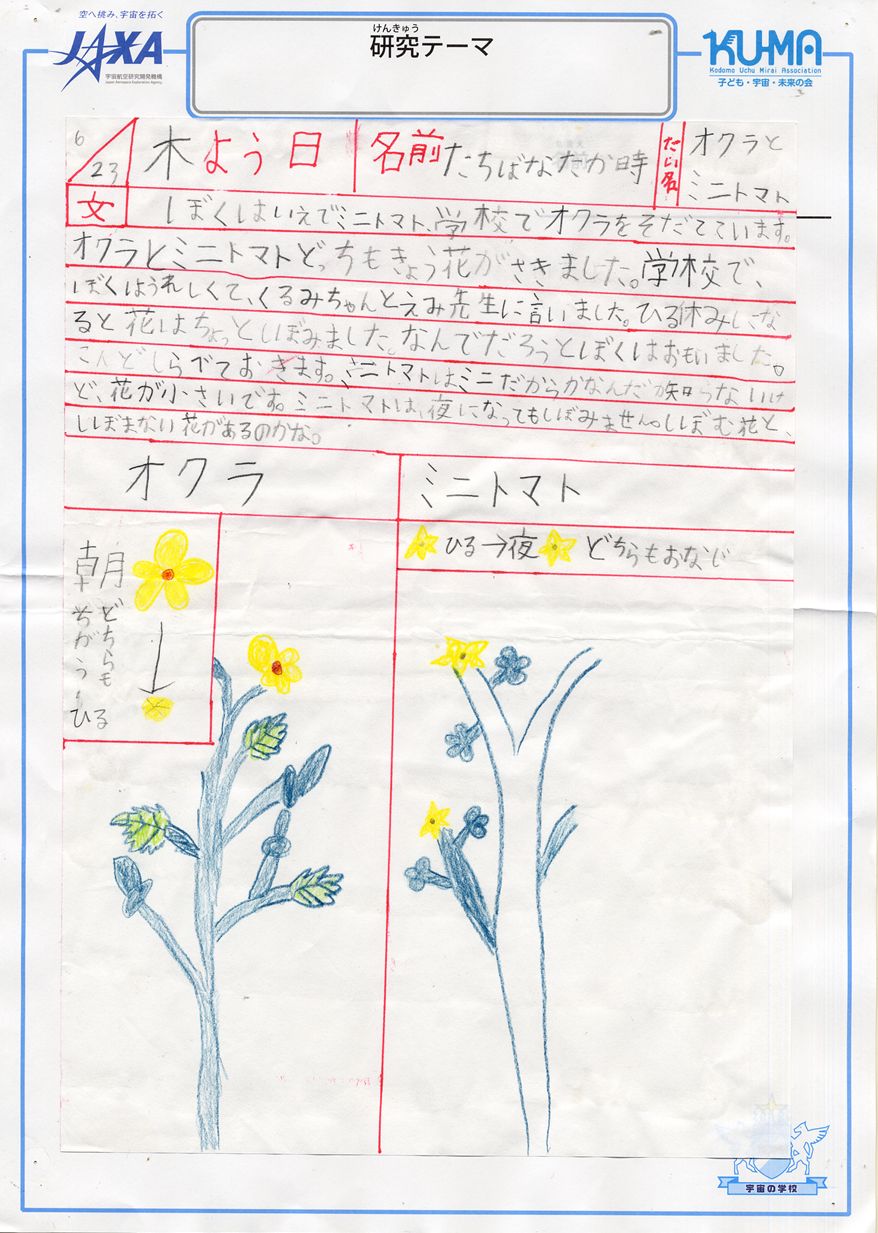 空へ挑み、宇宙を拓く
JAXA
宇宙航空研究開発機構
Japan Aerospace Exploration Agency
けんきゅう
研究テーマ
KU-MA
Kodomo Uchu Mirai Association
子ども・宇宙・未来の会
6/23
木よう日
名前 たちばなたか時
だい名
オクラと
ミニトマト
文
ぼくはいえでミニトマト、学校でオクラをそだてています。
オクラとミニトマトどっちもきょう花がさきました。学校で、
ぼくはうれしくて、くるみちゃんとえみ先生に言いました。ひる休みにな
ると花はちょっとしぼみました。なんでだろうとぼくはおもいました。
こんどしらべておきます。ミニトマトはミニだからかなんだか知らないけ
ど、花が小さいです。ミニトマトは、夜になってもしぼみません。しぼむ花と、
しぼまない花があるのかな。
オクラ
ミニトマト
ひる→夜 どちらもおなじ
朝
どちらも
ちがう
ひる
宇宙の学校